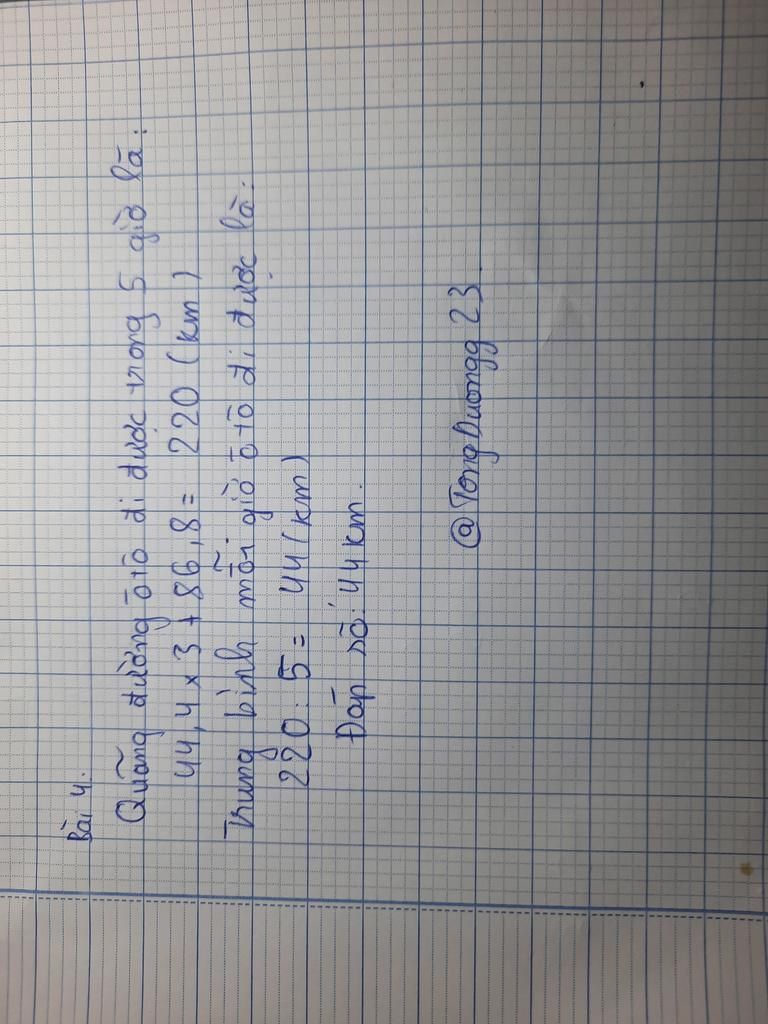 Bài 4:
Quãng đường ôtô đi được trong 5 giờ là:
44,4 x 3 + 86,8 = 220 (km)
Trung bình mỗi giờ ôtô đi được là:
220 : 5 = 44 (km)
Đáp số: 44 km.
@TongDuongg 23.